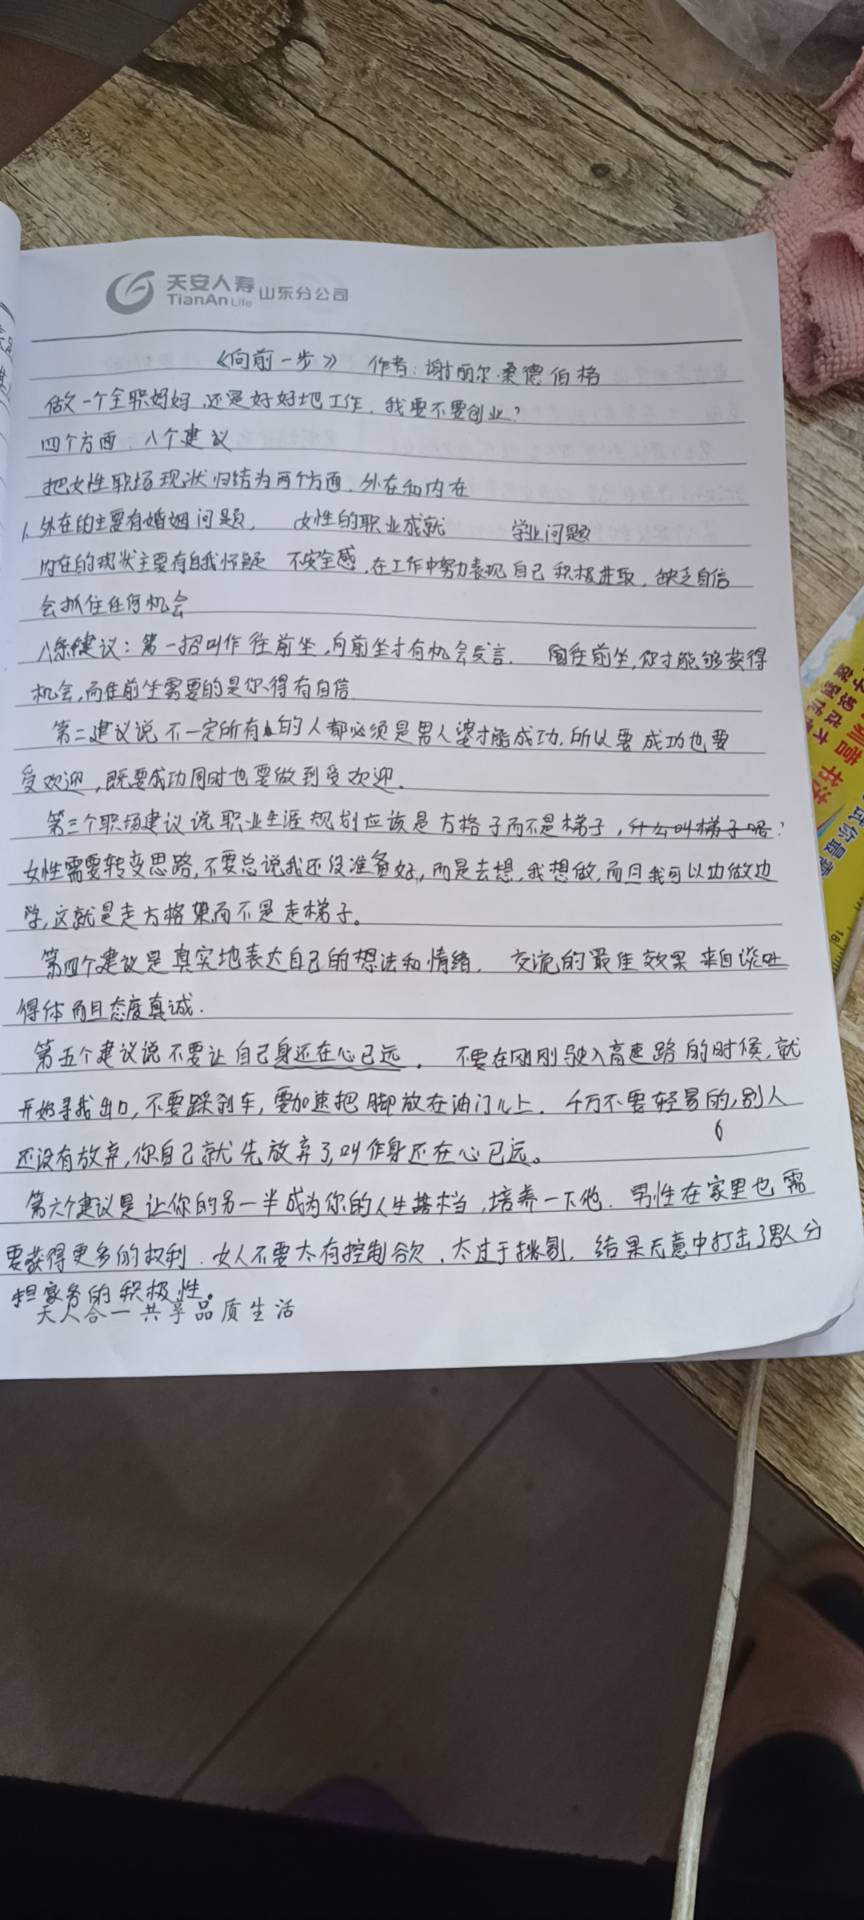 天安人寿 山东分公司
TianAn Life
《向前一步》 作者:谢丽尔·桑德伯格
做一个全职妈妈,还是好好地工作,我要不要创业?
四个方面,八个建议
把女性职场现状归结为两个方面,外在和内在
1、外在的主要有婚姻问题, 女性的职业成就 学业问题
内在的现状主要有自我怀疑 不安全感,在工作中努力表现自己 积极进取,缺乏自信
会抓住任何机会
八条建议:第一招叫作往前坐,向前坐才有机会发言. 往前坐,你才能够获得
机会,而往前坐需要的是你得有自信
第二建议说不一定所有的人都必须是男人婆才能成功.所以要成功也要
受欢迎,既要成功同时也要做到受欢迎.
第三个职场建议说职业生涯规划应该是方格子而不是梯子,什么叫梯子呢?
女性需要转变思路,不要总说我还没准备好,而是去想,我想做,而且我可以边做边
学,这就是走方格架而不是走梯子。
第四个建议是真实地表达自己的想法和情绪. 交流的最佳效果来自谈吐
得体而且态度真诚.
第五个建议说不要让自己身还在心已远. 不要在刚刚驶入高速路的时候,就
开始寻找出口,不要踩刹车,要加速把脚放在油门儿上. 千万不要轻易的,别人
还没有放弃,你自己就先放弃了,叫作身还在心已远。
第六个建议是让你的另一半成为你的人生搭档,培养一下他. 男性在家里也需
要获得更多的权利.女人不要太有控制欲、太过于挑剔,结果无意中打击了男人分
担家务的积极性。
天人合一 共享品质生活